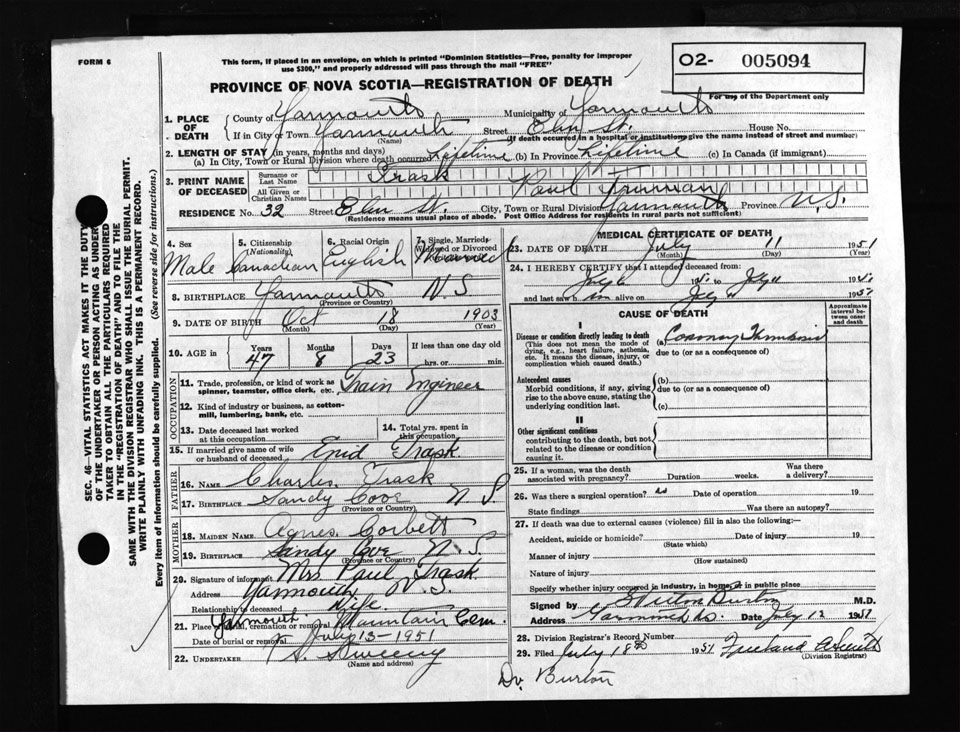 FORM 6
This form, if placed in an envelope, on which is printed "Dominion Statistics—Free, penalty for improper
use $300," and properly addressed will pass through the mail "FREE"
PROVINCE OF NOVA SCOTIA—REGISTRATION OF DEATH
O2- 005094
For use of the Department only
1. PLACE OF DEATH
County of Yarmouth Municipality of Yarmouth
If in City or Town Yarmouth Street Elm St. House No.
(Name) (If death occurred in a hospital or institution, give the name instead of street and number)
2. LENGTH OF STAY (in years, months and days)
(a) In City, Town or Rural Division where death occurred Lifetime (b) In Province Lifetime (c) In Canada (if immigrant)
3. PRINT NAME OF DECEASED
Surname or Last Name Trask
All Given or Christian Names Paul Truman
RESIDENCE No. 32 Street Elm St. City, Town or Rural Division Yarmouth Province N.S.
(Residence means usual place of abode. Post Office Address for residents in rural parts not sufficient)
4. Sex Male
5. Citizenship (Nationality) Canadian
6. Racial Origin English
7. Single, Married, Widowed or Divorced Married
8. BIRTHPLACE Yarmouth N.S
(Province or Country)
9. DATE OF BIRTH Oct 18 1903
(Month) (Day) (Year)
10. AGE in Years 47 Months 8 Days 23 If less than one day old hrs. or min.
OCCUPATION
11. Trade, profession, or kind of work as spinner, teamster, office clerk, etc. Train Engineer
12. Kind of industry or business, as cotton-mill, lumbering, bank, etc.
13. Date deceased last worked at this occupation
14. Total yrs. spent in this occupation
15. If married give name of wife or husband of deceased Enid Trask
FATHER
16. NAME Charles Trask
17. BIRTHPLACE Sandy Cove N.S.
(Province or Country)
MOTHER
18. MAIDEN NAME Agnes Corbett
19. BIRTHPLACE Sandy Cove N.S.
(Province or Country)
20. Signature of informant Mrs Paul Trask
Address Yarmouth N.S.
Relationship to deceased Wife
21. Place of burial, cremation or removal Yarmouth Mountain Cem.
Date of burial or removal July 13-1951
22. UNDERTAKER Sweeny
(Name and address)
MEDICAL CERTIFICATE OF DEATH
23. DATE OF DEATH July 11 1951
(Month) (Day)
24. I HEREBY CERTIFY that I attended deceased from:
19 to July 11 19
and last saw him alive on July 11 1951
CAUSE OF DEATH
Approximate interval between onset and death
I
Disease or condition directly leading to death
(This does not mean the mode of dying, e.g., heart failure, asthenia, etc. It means the disease, injury, or complication which caused death.)
(a) Coronary Thrombosis
due to (or as a consequence of)
Antecedent causes
Morbid conditions, if any, giving rise to the above cause, stating the underlying condition last.
(b)
due to (or as a consequence of)
(c)
II
Other significant conditions
contributing to the death, but not related to the disease or condition causing it.
25. If a woman, was the death associated with pregnancy? Duration weeks. Was there a delivery?
26. Was there a surgical operation? no Date of operation 19
State findings Was there an autopsy?
27. If death was due to external causes (violence) fill in also the following:—
Accident, suicide or homicide? Date of injury 19
(State which)
Manner of injury
(How sustained)
Nature of injury
Specify whether injury occurred in industry, in home, or in public place
Signed by Burton M.D.
Address Yarmouth N.S. Date July 12 1951
28. Division Registrar's Record Number
29. Filed July 18th 1951
(Division Registrar)
Dr. Burton
SEC. 46—VITAL STATISTICS ACT MAKES IT THE DUTY
OF THE UNDERTAKER OR PERSON ACTING AS UNDER-
TAKER TO OBTAIN ALL THE PARTICULARS REQUIRED
IN THE "REGISTRATION OF DEATH" AND TO FILE THE
SAME WITH THE DIVISION REGISTRAR WHO SHALL ISSUE THE BURIAL PERMIT.
WRITE PLAINLY WITH UNFADING INK. THIS IS A PERMANENT RECORD.
Every item of information should be carefully supplied. (See reverse side for instructions.)